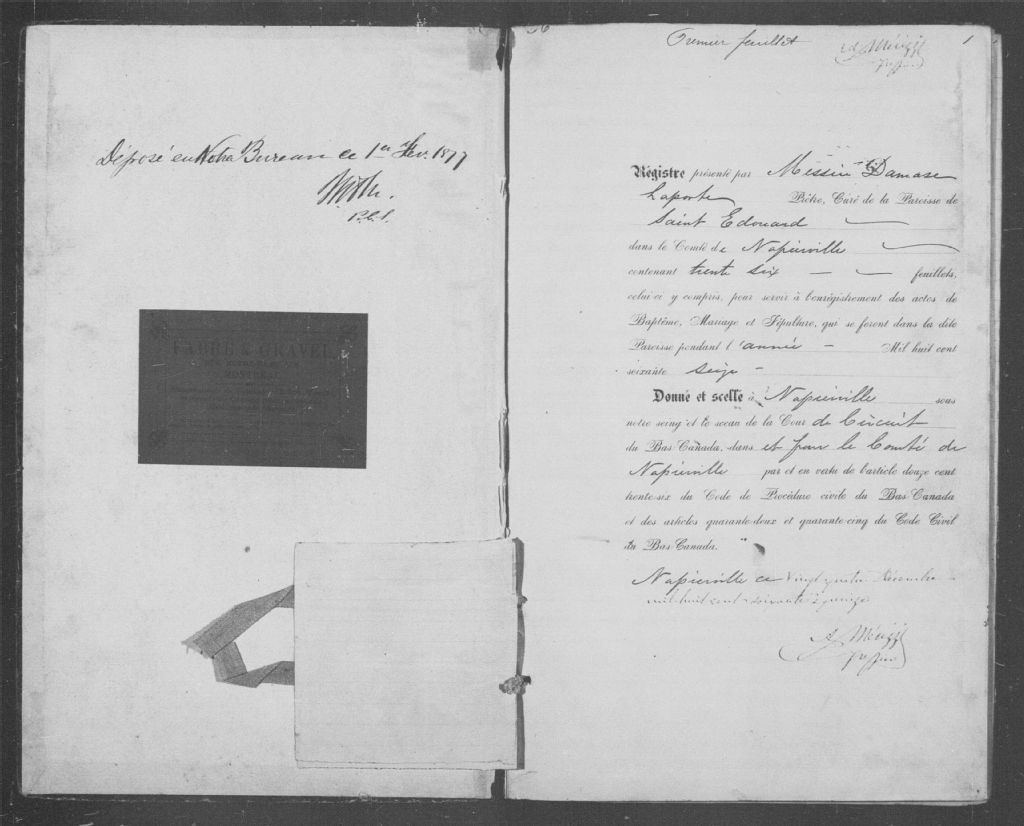 Déposé en Notre Bureau ce 1er Fev. 1877
P.C.S.
FABRE & GRAVEL
Premier feuillet
1
Régistre présenté par Messire Damase
Laporte Prêtre, Curé de la Paroisse de
Saint Edouard
dans le Comté de Napierville
contenant trente six — feuillets,
celui-ci y compris, pour servir à l'enrégistrement des actes de
Baptême, Mariage et Sépulture, qui se feront dans la dite
Paroisse pendant l'année — Mil huit cent
soixante seize -
Donné et scellé à Napierville sous
notre seing et le sceau de la Cour de Circuit
du Bas-Canada, dans et pour le Comté de
Napierville par et en vertu de l'article douze cent
trente-six du Code de Procédure civile du Bas-Canada
et des articles quarante-deux et quarante-cinq du Code Civil
du Bas-Canada.
Napierville ce vingt quatre Décembre
mil huit cent soixante & quinze